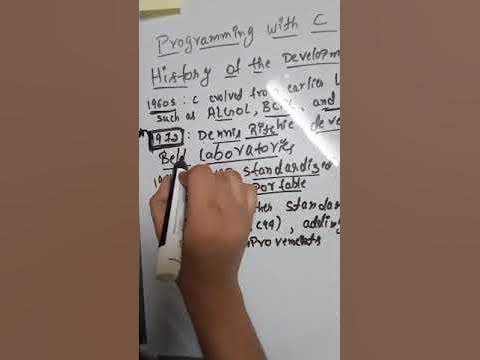 Programming with C
History of the Developm
1960s : C evolved from earlier L
such as ALGOL, BC and
1972 : Dennis Ritchie deve
Bell Laboratories
19 standardized
portable
ther standar
C99), adding
mprovements